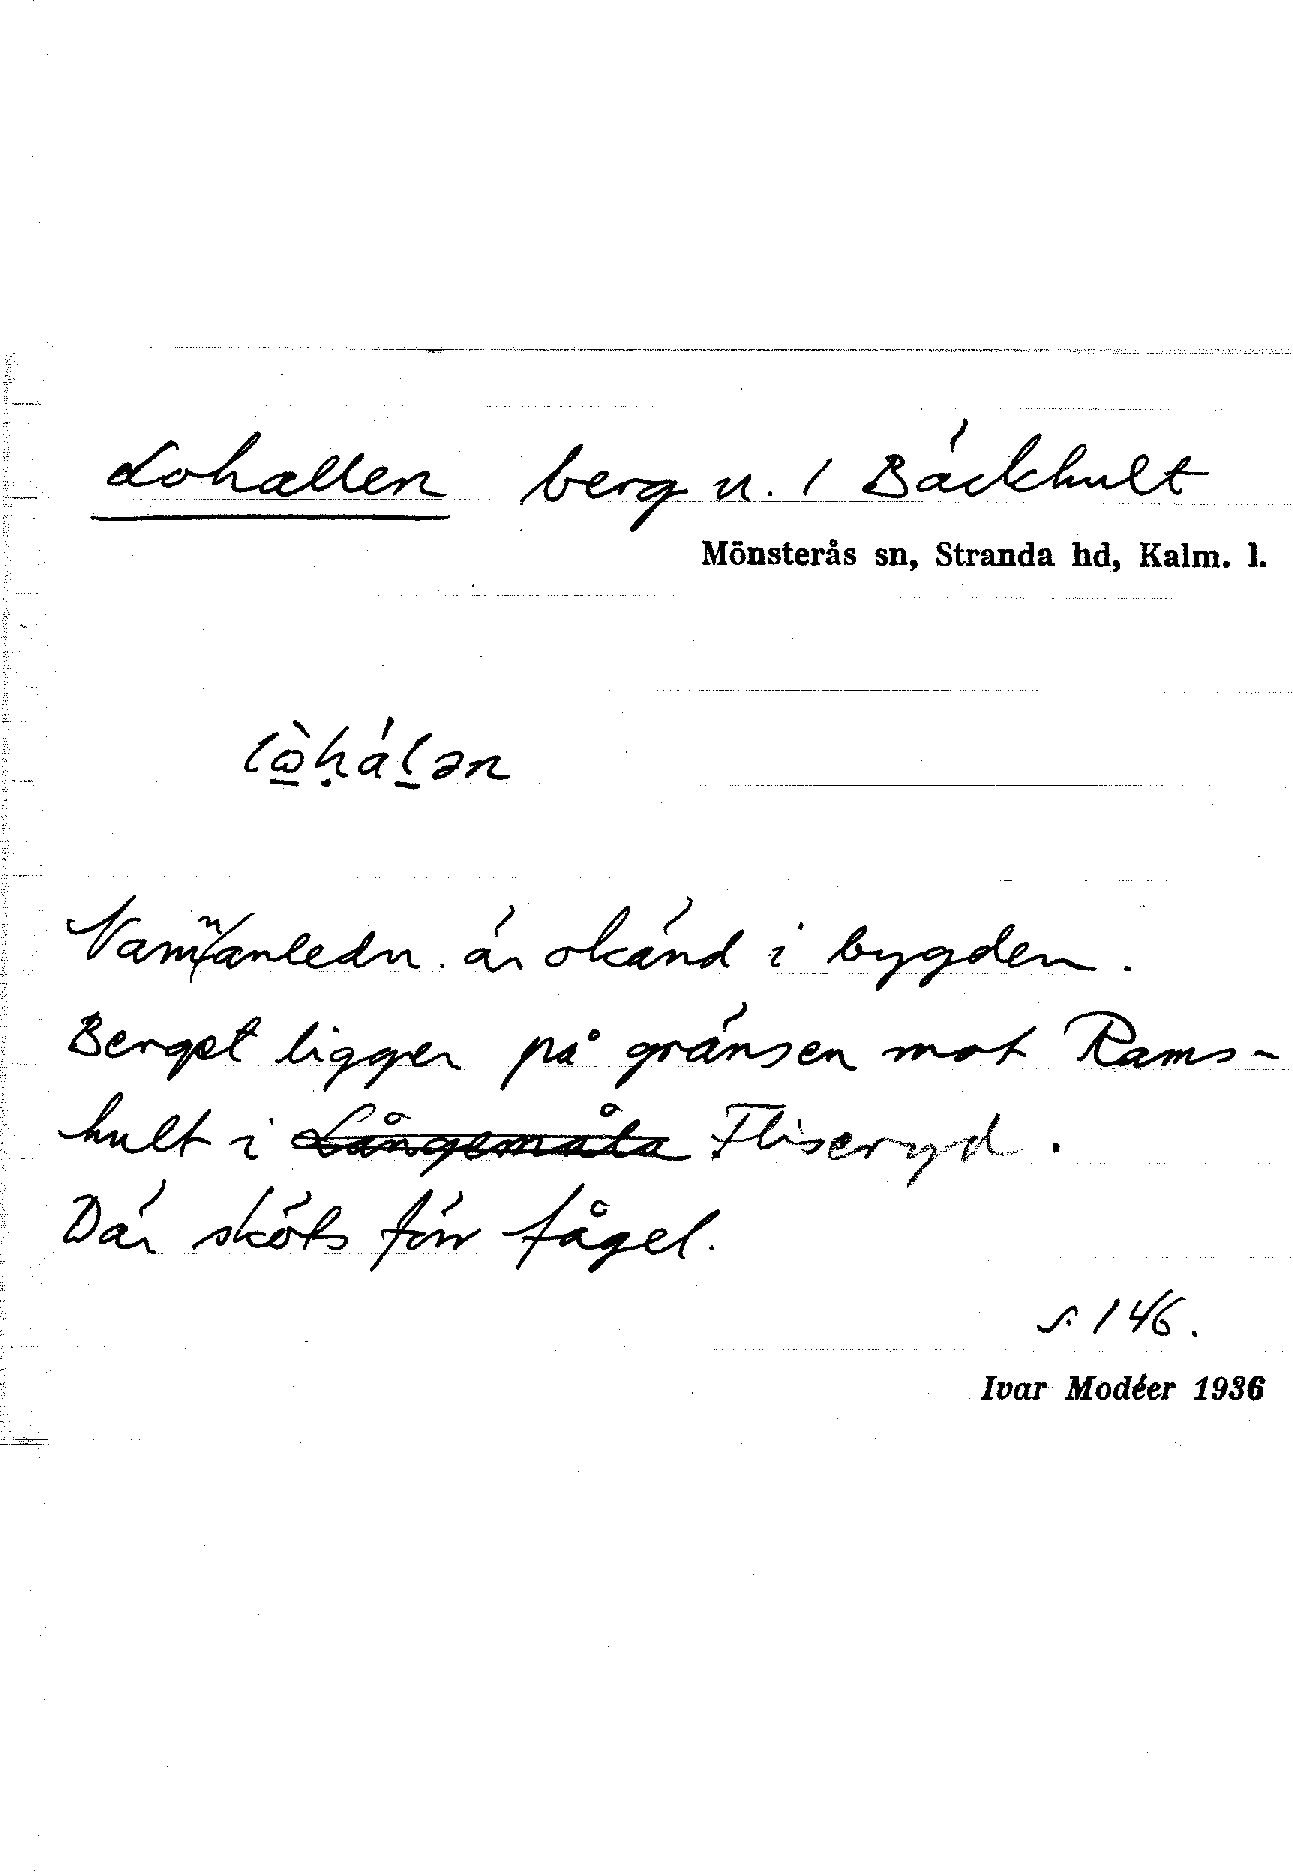 Lohallen berg u. / Bäckhult
Mönsterås sn, Stranda hd, Kalm. l.
lò̱ḥáḻən
Namnanledn. är okänd i bygden.
Berget ligger på gränsen mot Rams-
hult i Långemåla Fliseryd.
Där sköts förr fågel.
s. 146.
Ivar Modéer 1936